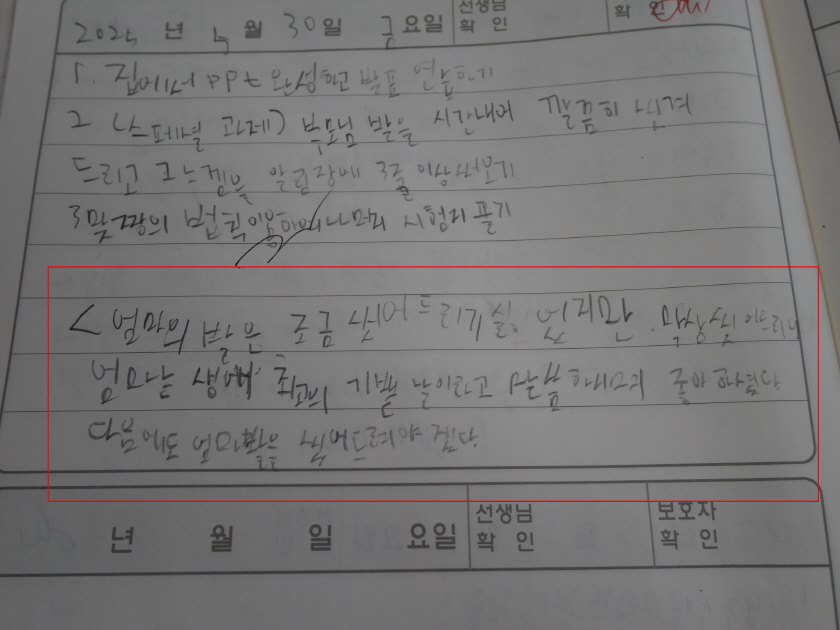 선생님 확인
확인
202 년 월 30일 금요일
1. 집에서 ppt 완성하고 발표 연습하기
2 (스페셜 과제) 부모님 발을 시간내어 깔끔히 씻겨
드리고 그 느낌을 알림장에 3줄 이상 써오기
3 맞꿈의 법칙이용하여나머지 시험지 풀기
< 엄마의 발은 조금 씻어드리기 싫었지만 막상 씻어드리니
엄마는 생에 최고의 기쁜 날이라고 말씀하시며 좋아하셨다
다음에도 엄마발을 씻어드려야 겠다
년 월 일 요일
선생님 확인
보호자 확인